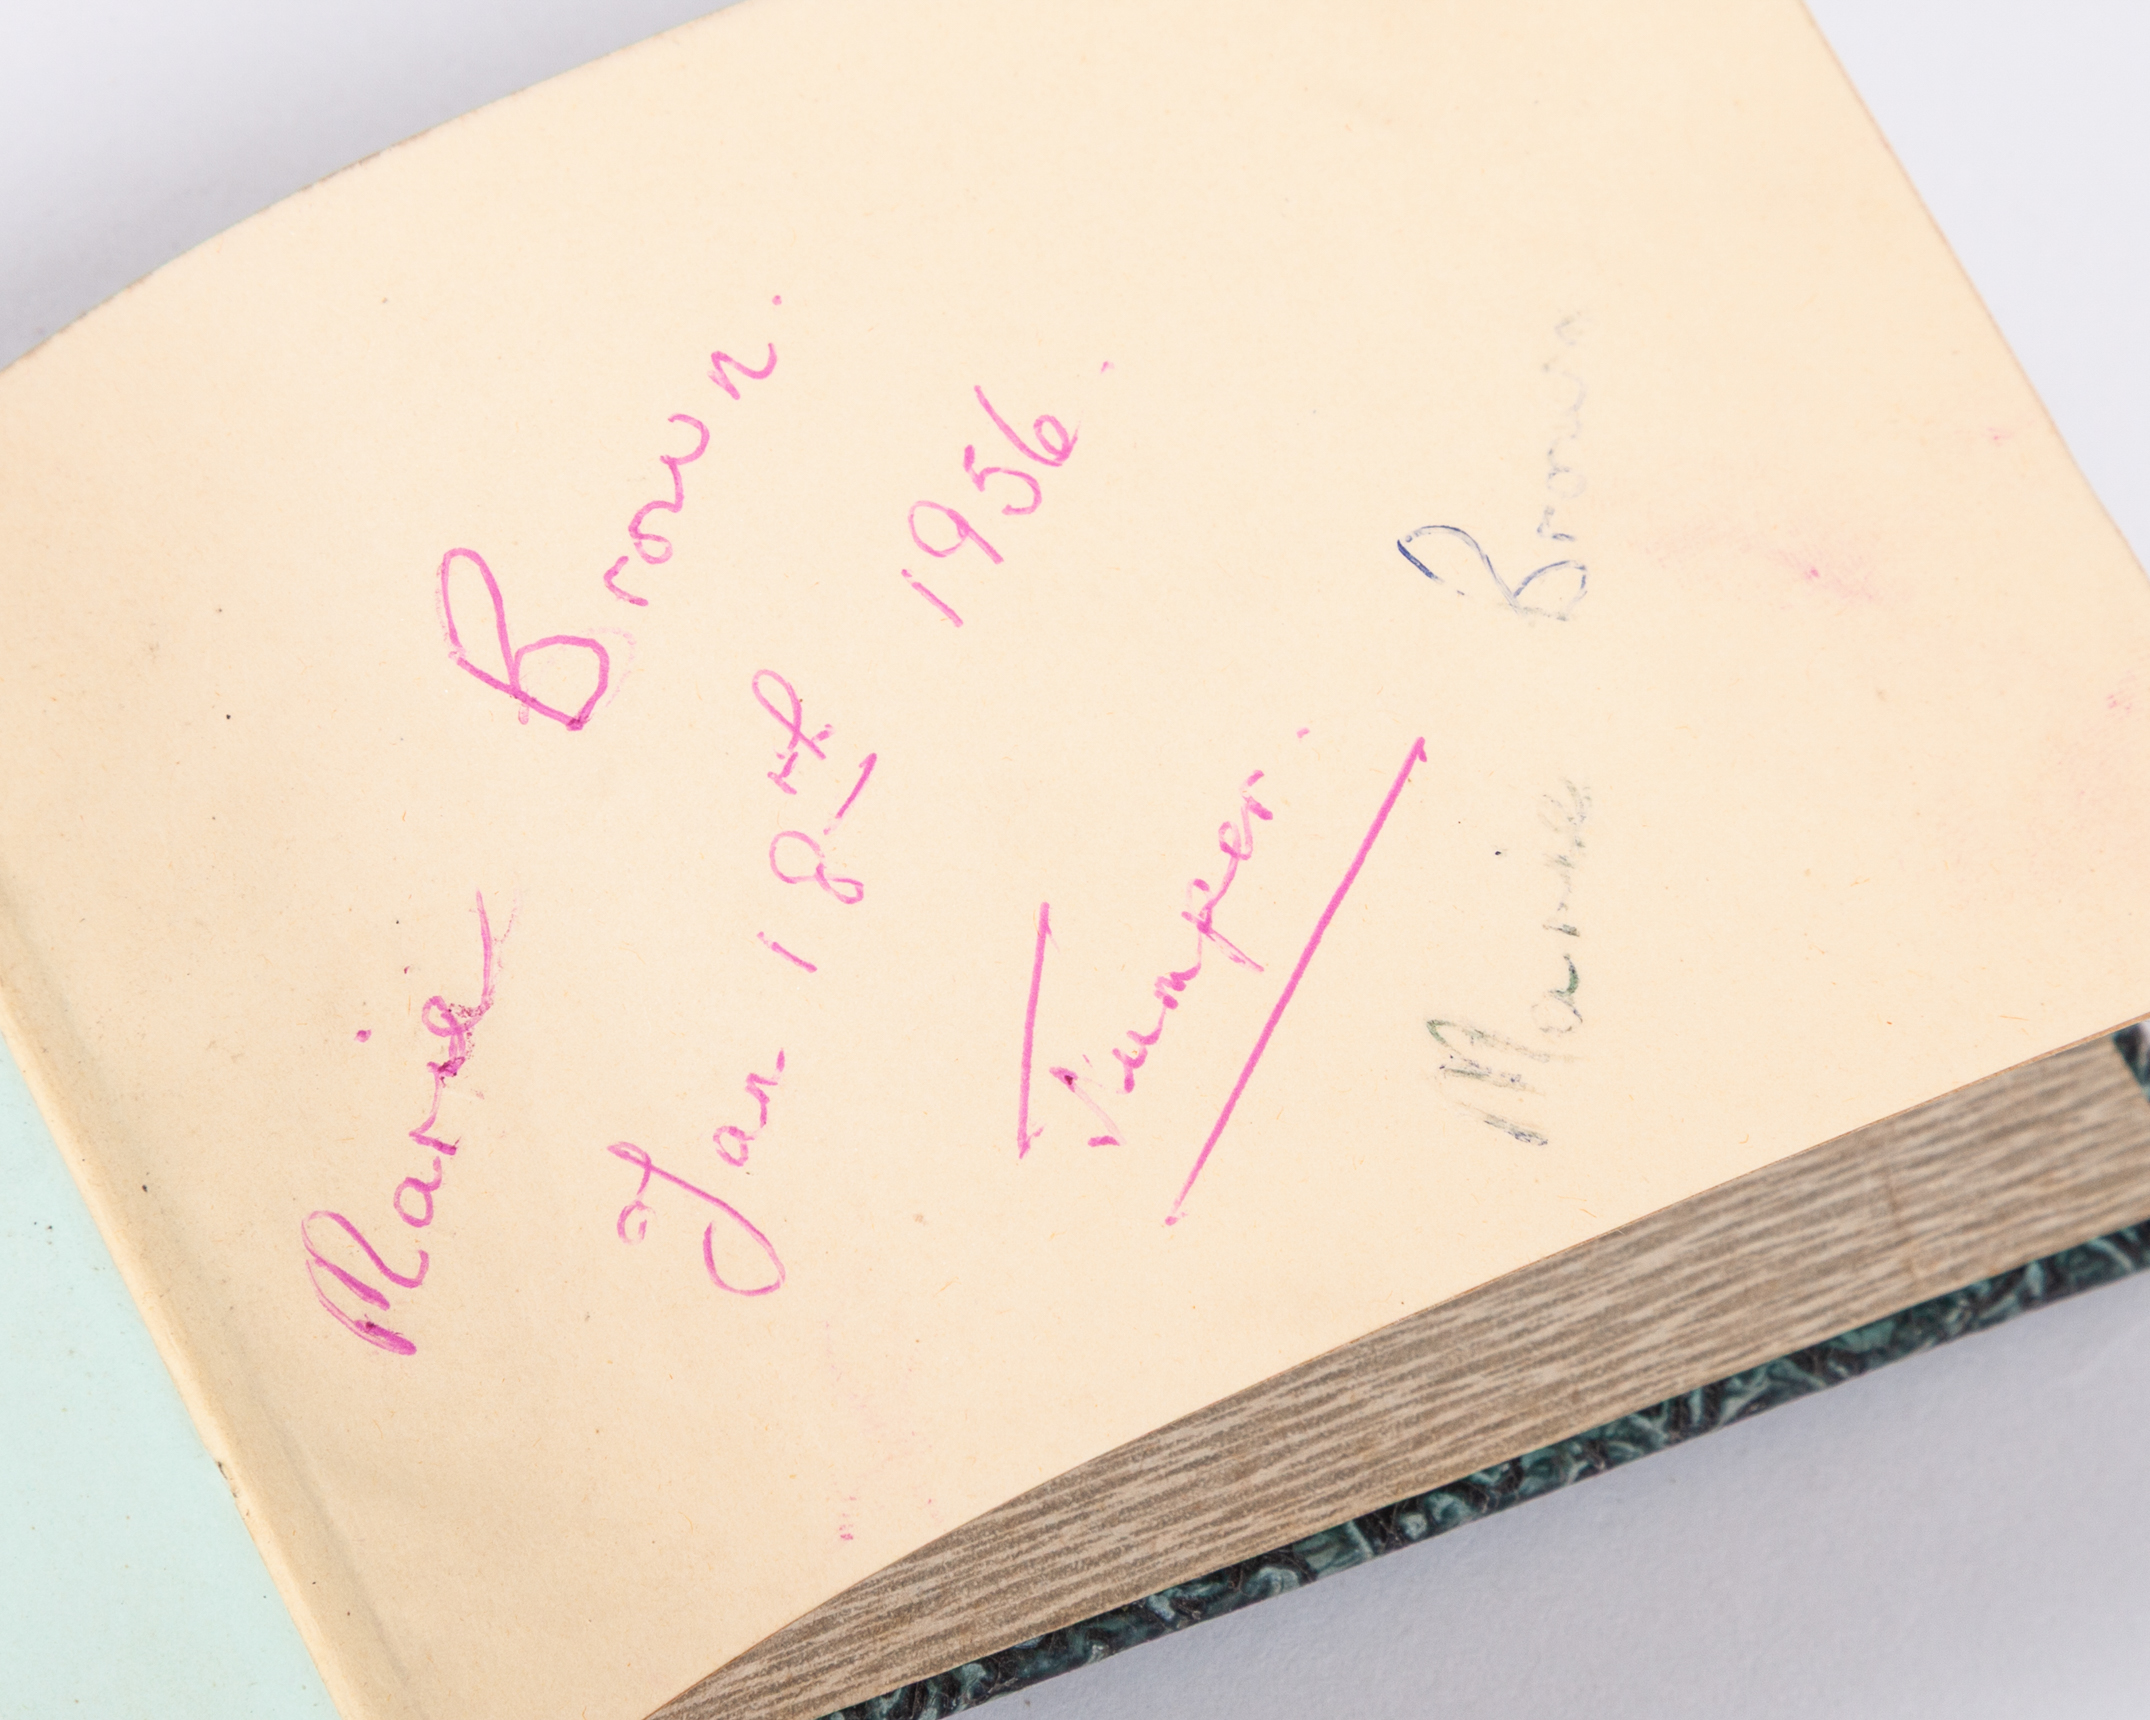 Marie Brown.
Jan 18th 1956.
Jumper.
Marie Brown